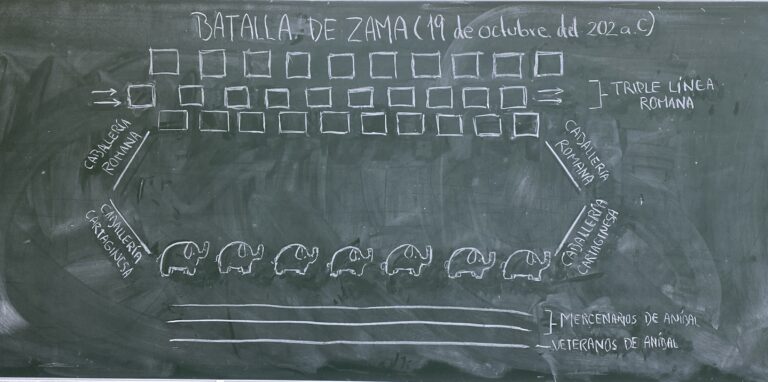 BATALLA DE ZAMA (19 de octubre del 202 a.C)
TRIPLE LÍNEA
ROMANA
CABALLERÍA
ROMANA
CABALLERÍA
ROMANA
CABALLERÍA
CARTAGINESA
CABALLERÍA
CARTAGINESA
MERCENARIOS DE ANÍBAL
VETERANOS DE ANÍBAL